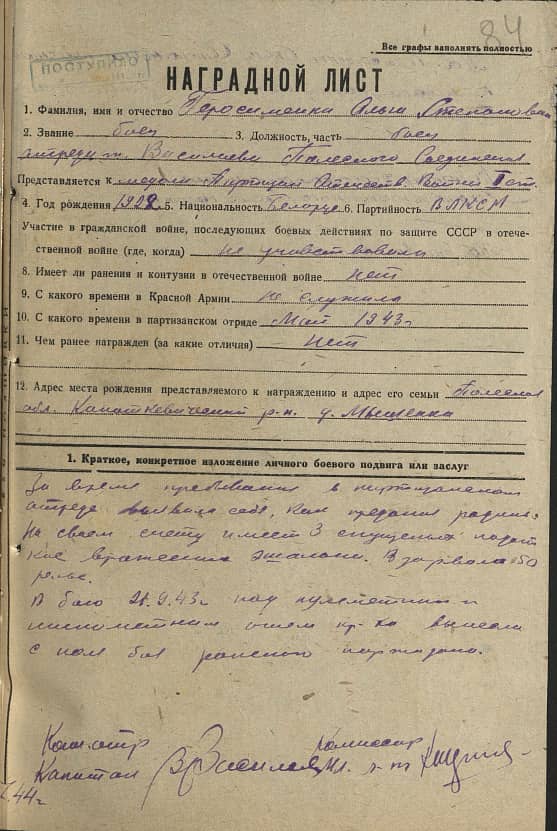 84
Все графы наполнять полностью
НАГРАДНОЙ ЛИСТ
1. Фамилия, имя и отчество Герасименко Ольга Степановна
2. Звание боец 3. Должность, часть боец
отряда им. Васильева Полесского Соединения
Представляется к медали Партизан Отечеств. Войны II ст.
4. Год рождения 1928 5. Национальность Белорус 6. Партийность ВЛКСМ
Участие в гражданской войне, последующих боевых действиях по защите СССР в отече-
ственной войне (где, когда) не участвовала
8. Имеет ли ранения и контузии в отечественной войне нет
9. С какого времени в Красной Армии не служила
10. С какого времени в партизанском отряде Май 1943 г
11. Чем ранее награжден (за какие отличия) нет
12. Адрес места рождения представляемого к награждению и адрес его семьи Полесская
обл. Копаткевический р-н. д. Мышенка
1. Краткое, конкретное изложение личного боевого подвига или заслуг
За время пребывания в партизанском
отряде показала себя, как преданая родине.
На своем счету имеет 3 спущеных под откос
вражеских эшалона. Взорвала 50
рельс.
В бою 9.43 г под пулеметным и
минометным огнем пр-ка вынесла
с поля боя раненого партизана.
Ком. отр Комиссар
Капитан Васильев л-т
44 г